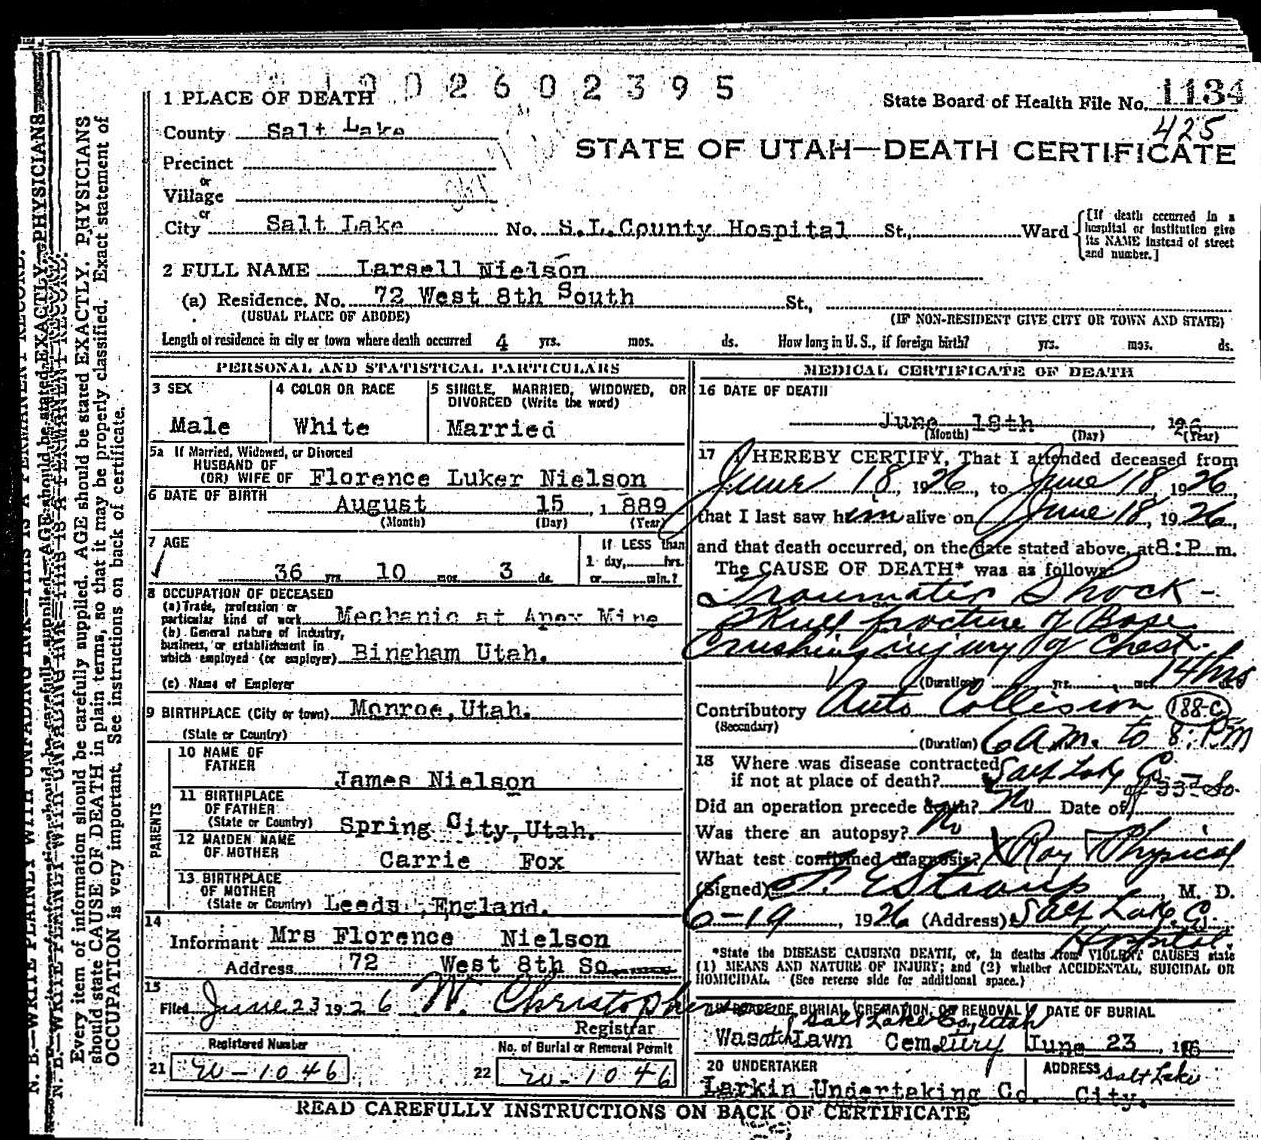 1002602395
1 PLACE OF DEATH
State Board of Health File No. 1134
425
County Salt Lake
STATE OF UTAH—DEATH CERTIFICATE
Precinct
or
Village
or
City Salt Lake No. S.L.County Hospital St., Ward
[If death occurred in a
hospital or institution give
its NAME instead of street
and number.]
2 FULL NAME Larsell Nielson
(a) Residence. No. 72 West 8th South St.,
(USUAL PLACE OF ABODE) (IF NON-RESIDENT GIVE CITY OR TOWN AND STATE)
Length of residence in city or town where death occurred 4 yrs. mos. ds. How long in U.S., if foreign birth? yrs. mos. ds.
PERSONAL AND STATISTICAL PARTICULARS
3 SEX
Male
4 COLOR OR RACE
White
5 SINGLE, MARRIED, WIDOWED, OR
DIVORCED (Write the word)
Married
5a If Married, Widowed, or Divorced
HUSBAND OF
(OR) WIFE OF Florence Luker Nielson
6 DATE OF BIRTH August 15, 1889
(Month) (Day) (Year)
7 AGE
36 yrs. 10 mos. 3 ds.
If LESS than
1 day, hrs.
or min.?
8 OCCUPATION OF DECEASED
(a) Trade, profession or
particular kind of work Mechanic at Apex Mine
(b) General nature of industry,
business, or establishment in
which employed (or employer) Bingham Utah.
(c) Name of Employer
9 BIRTHPLACE (City or town) Monroe, Utah.
(State or Country)
PARENTS
10 NAME OF
FATHER
James Nielson
11 BIRTHPLACE
OF FATHER
(State or Country) Spring City, Utah.
12 MAIDEN NAME
OF MOTHER Carrie Fox
13 BIRTHPLACE
OF MOTHER
(State or Country) Leeds, England.
14
Informant Mrs Florence Nielson
Address 72 West 8th So.
15
Filed June 23 1926 W. Christopher
Registrar
Registered Number
21 W-1046
No. of Burial or Removal Permit
22 W-1046
MEDICAL CERTIFICATE OF DEATH
16 DATE OF DEATH
June 18th, 1926
(Month) (Day) (Year)
17 I HEREBY CERTIFY, That I attended deceased from
June 18, 1926, to June 18, 1926,
that I last saw him alive on June 18, 1926,
and that death occurred, on the date stated above, at 8:P m.
The CAUSE OF DEATH* was as follows:
Traumatic Shock -
Skull fracture of Base
Crushing injury of Chest
(Duration) yrs. mos. 14 hrs ds.
Contributory Auto Collision 188-C
(Secondary)
(Duration) 6 a.m. to 8:PM
18 Where was disease contracted
if not at place of death? Salt Lake Co
33rd So.
Did an operation precede death? No Date of
Was there an autopsy? No
What test confirmed diagnosis? X Ray Physical
(Signed) , M. D.
6-19, 1926 (Address) Salt Lake Co
Hospital.
*State the DISEASE CAUSING DEATH, or, in deaths from VIOLENT CAUSES state
(1) MEANS AND NATURE OF INJURY; and (2) whether ACCIDENTAL, SUICIDAL OR
HOMICIDAL. (See reverse side for additional space.)
PLACE OF BURIAL, CREMATION, OR REMOVAL DATE OF BURIAL
Salt Lake Co, Utah
Wasatch Lawn Cemetery June 23, 1926
20 UNDERTAKER ADDRESS Salt Lake
Larkin Undertaking Co. City.
READ CAREFULLY INSTRUCTIONS ON BACK OF CERTIFICATE
N. B.—WRITE PLAINLY WITH UNFADING INK—THIS IS A PERMANENT RECORD.
Every item of information should be carefully supplied. AGE should be stated EXACTLY. PHYSICIANS
should state CAUSE OF DEATH in plain terms, so that it may be properly classified. Exact statement of
OCCUPATION is very important. See instructions on back of certificate.